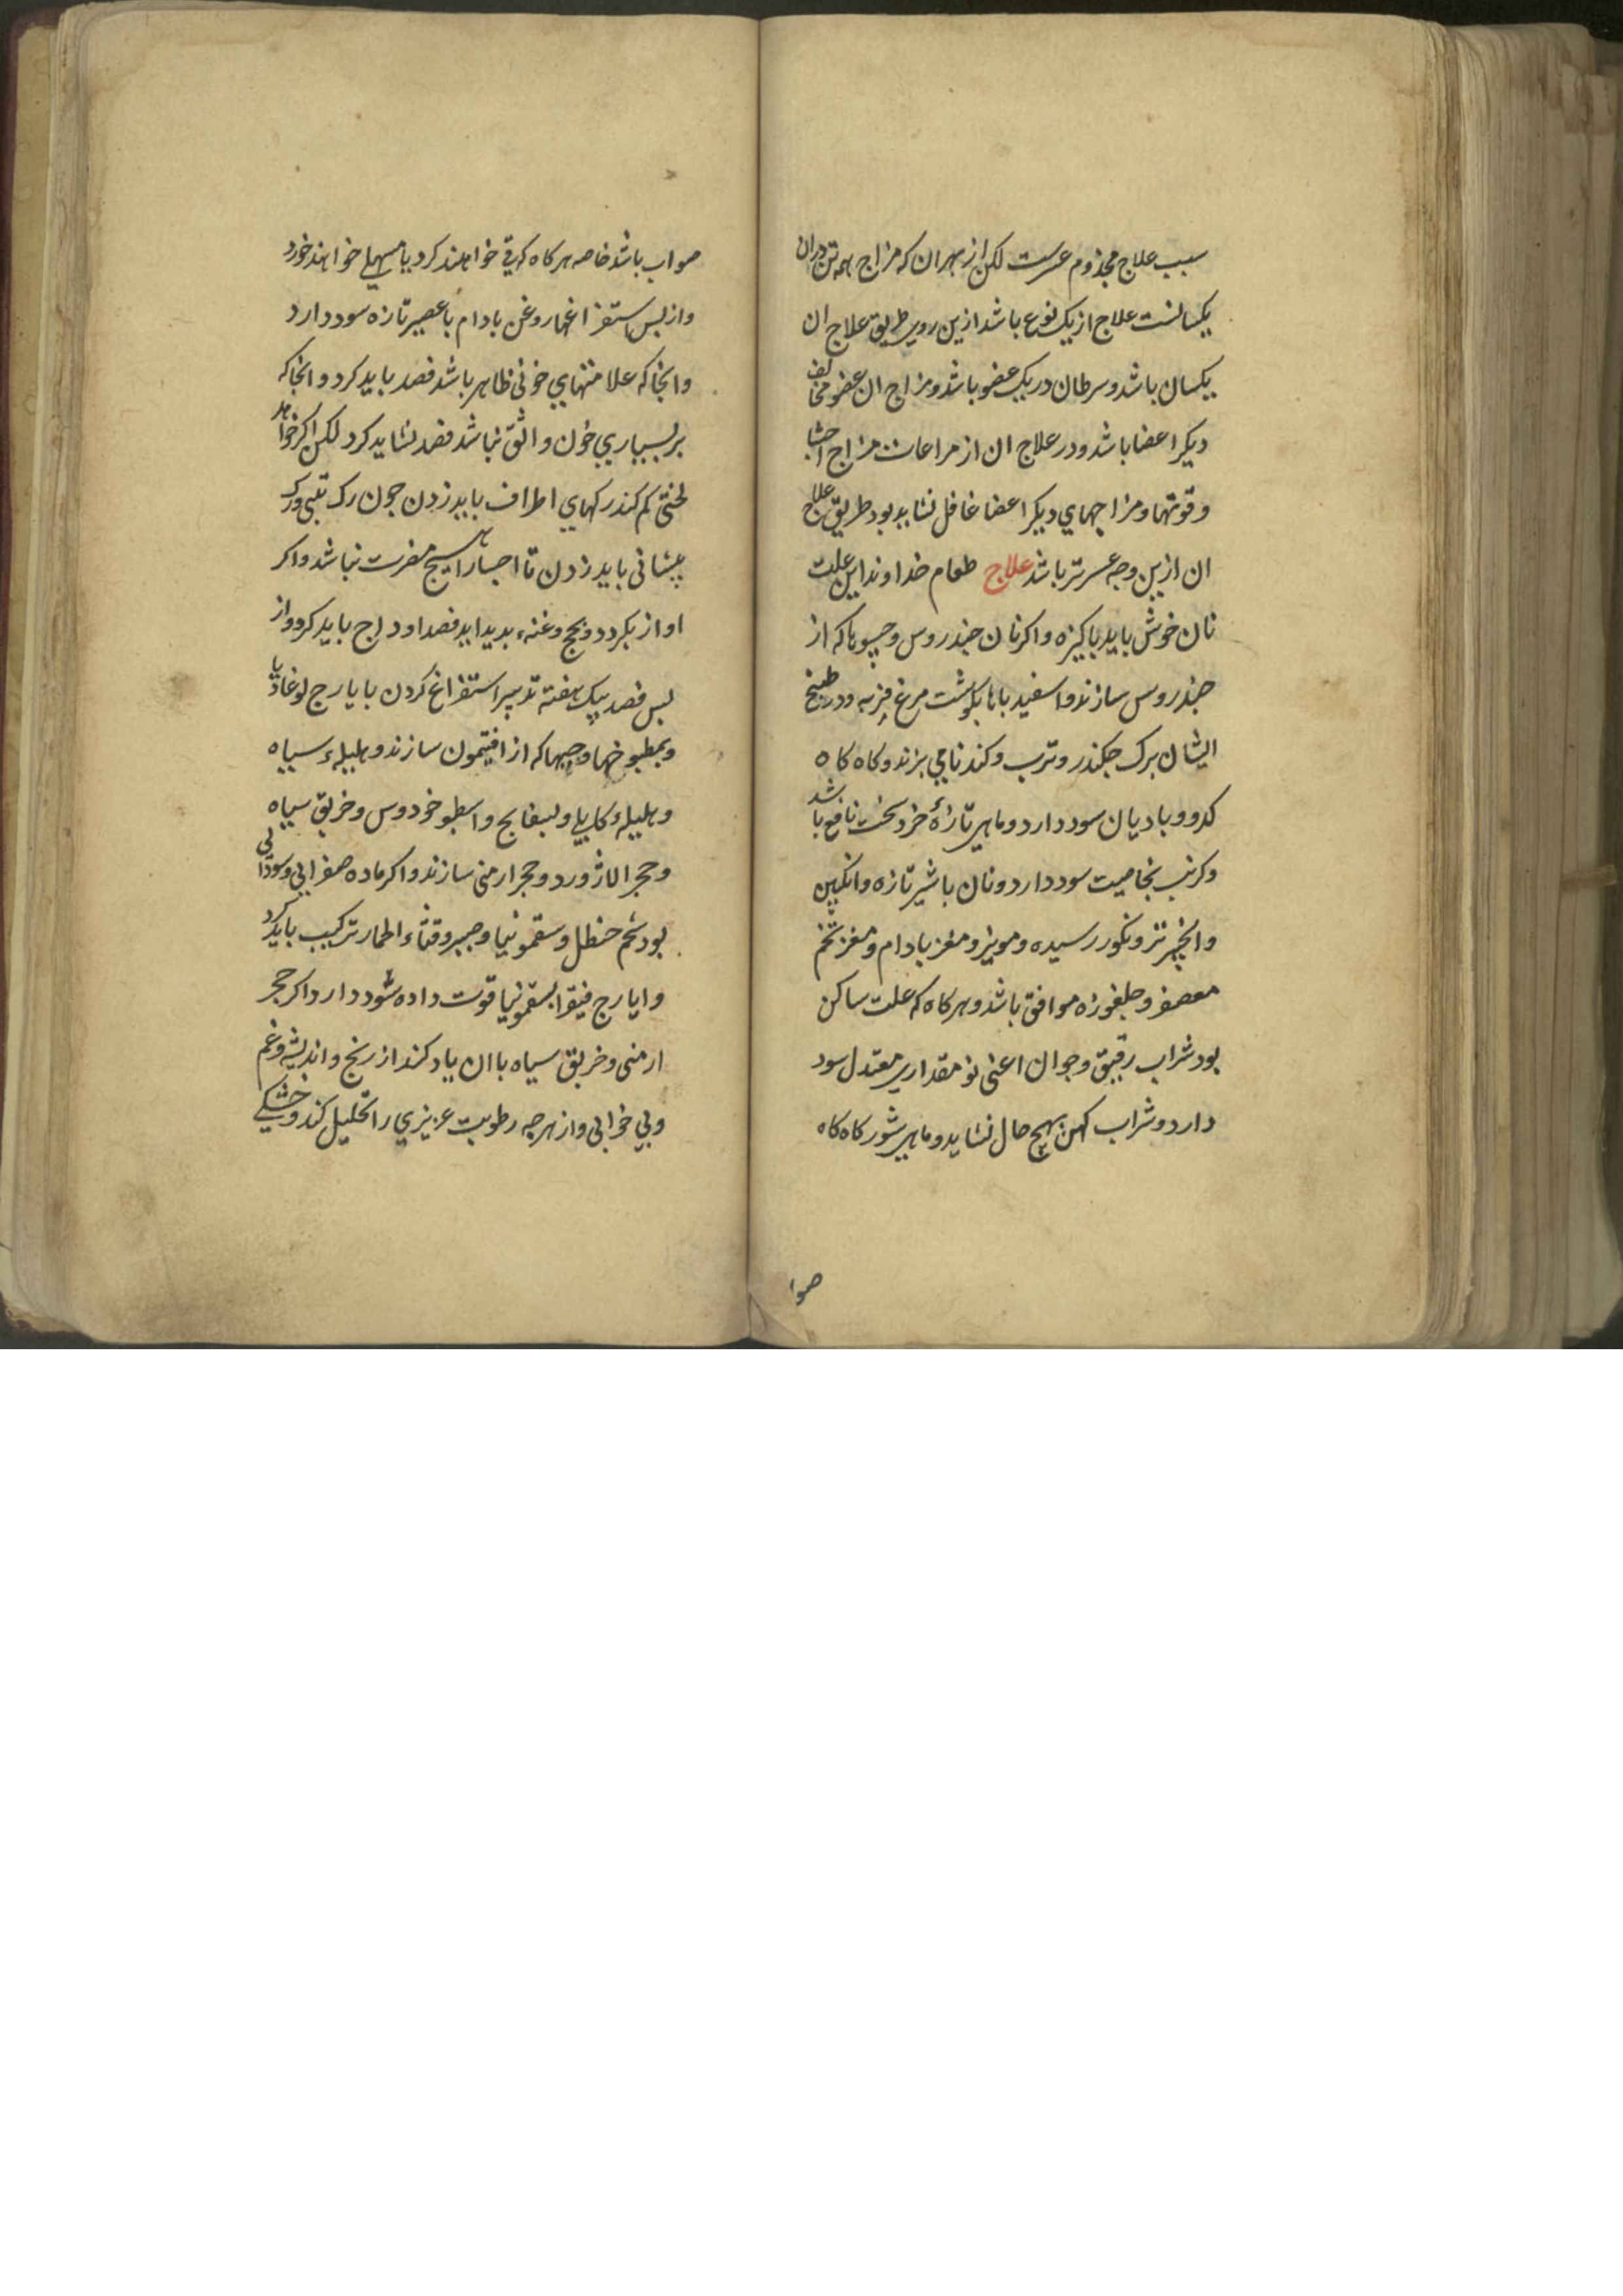 سبب علاج مجذوم عسرست لکن از بهر ان که مزاج همه تن دران
یکسانست علاج از یک نوع باشد ازین روی طریق علاج ان
یکسان باشد و سرطان در یک عضو باشد و مزاج ان عضو مخالف
دیکر اعضا باشد و در علاج ان از مراعات مزاج احشا
و قوتها و مزاجهای دیکر اعضا غافل نشاید بود طریق علاج
ان ازین وجه عسرتر باشد علاج طعام خداوند این علت
نان خوش باید باکیزه و اکر نان خندروس و حسوها که از
خندروس سازند و اسفیدباها بکوشت مرغ فربه و در طبیخ
ایشان برک جکندر و ترب و کندنا می بزند و کاه کاه
کدو و بادیان سود دارد و ماهی تازهٔ خرد سخت نافع باشد
و کرنب بخاصیت سود دارد و نان با شیر تازه و انکبین
و انجیر تر و نکور رسیده و مویز و مغز بادام و مغز تخم
معصفر و جلغوزه موافق باشد و هرکاه که علت ساکن
بود شراب رقیق و جوان اعنی نو مقداری معتدل سود
دارد و شراب کهن بهیچ حال نشاید و ماهی شور کاه کاه
صوا
صواب باشد خاصه هرکاه که قی خواهند کرد یا مسهلی خواهند خورد
و از بس استفراغها روغن بادام با عصیر تازه سود دارد
و انجا که علامتهای خونی ظاهر باشد فصد باید کرد و انجا که
بر بسیاری خون واثق نباشد فصد نشاید کرد لکن اکر خواهد
لختی کم کند رکهای اطراف باید زدن جون رک بینی و رک
پیشانی باید زدن تا احشا را هیچ مضرت نباشد و اکر
اواز بکردد و بحح و غنه بدید اید فصد اوداج باید کرد و از
بس فصد بیک هفته تدبیر استفراغ کردن با یارج لوغاذیا
و بمطبوخها و حبها که از افتیمون سازند و هلیلهء سیاه
و هلیلهء کابلی و بسفایج و اسطوخودوس و خربق سیاه
و حجر الاژورد و حجر ارمنی سازند و اکر ماده صفرایی و سودایی
بود شحم حنظل و سقمونیا و صبر و قثاء الحمار ترکیب باید کرد
و ایارج فیقرا بسقمونیا قوت داده سود دارد اکر حجر
ارمنی و خربق سیاه با ان یاد کند از رنج و اندیشه و غم
و بی خوابی و از هر جه رطوبت عزیزی را تحلیل کند و خشکی